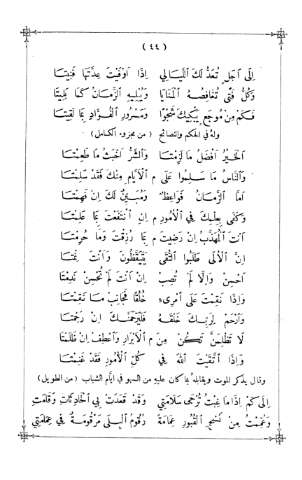 (٤٤)
إِلَى أَجَلٍ تُعَدُّ لَكَ اللَّيَالِي إِذَا أَوْفَيْتَ عِدَّتَهَا فَنِيتَا
وَكُلُّ فَتًى تُغَافِصُهُ الْمَنَايَا وَيُبْلِيهِ الزَّمَانُ كَمَا بَلِيتَا
فَكَمْ مِنْ مُوجَعٍ يَبْكِيكَ شَجْوًا وَمَسْرُورِ الْفُؤَادِ بِمَا لَقِيتَا
وله في الحكم والنصائح (من مجزوء الكامل)
الْخَيْرُ أَفْضَلُ مَا لَزِمْتَا وَالشَّرُّ أَخْبَثُ مَا طَعِمْتَا
وَالنَّاسُ مَا سَلِمُوا عَلَى م الْأَيَّامِ مِنْكَ فَقَدْ سَلِمْتَا
أَمَّا الزَّمَانُ فَوَاعِظٌ وَمُبَيِّنٌ لَكَ إِنْ فَهِمْتَا
وَكَفَى بِعِلْمِكَ فِي الْأُمُورِ م إِنِ انْتَفَعْتَ بِمَا عَلِمْتَا
أَنْتَ الْمُهَذَّبُ إِنْ رَضِيتَ م بِمَا رُزِقْتَ وَمَا حُرِمْتَا
إِنَّ الْأُلَى طَلَبُوا التُّقَى يَتَيَقَّظُونَ وَأَنْتَ نِمْتَا
أَحْسِنْ وَإِلَّا لَمْ تُصِبْ إِنْ أَنْتَ لَمْ تُحْسِنْ نَدِمْتَا
وَإِذَا نَقَمْتَ عَلَى امْرِىءٍ خُلُقًا فَجَانِبْ مَا نَقِمْتَا
وَارْحَمْ لِرَبِّكَ خَلْقَهُ فَلَيَرْحَمَنَّكَ إِنْ رَحِمْتَا
لَا تَظْلِمَنَّ تَكُنْ مِنَ م الْأَبْرَارِ وَاعْطِفْ إِنْ ظُلِمْتَا
وَإِذَا اتَّقَيْتَ اللهَ فِي كُلِّ الْأُمُورِ فَقَدْ غَنِمْتَا
وقال يذكر الموت ويقابله بما كان عليه من السهو في أيام الشباب (من الطويل)
إِلَى كَمْ إِذَا مَا غِبْتُ تُرْجَى سَلَامَتِي وَقَدْ قَعَدَتْ بِي الْحَادِثَاتُ وَقَامَتِ
وَعُمِّمْتُ مِنْ نَسْجِ الْقُبُورِ عِمَامَةً رُقُومُ الْبِلَى مَرْقُومَةٌ فِي عِمَامَتِي